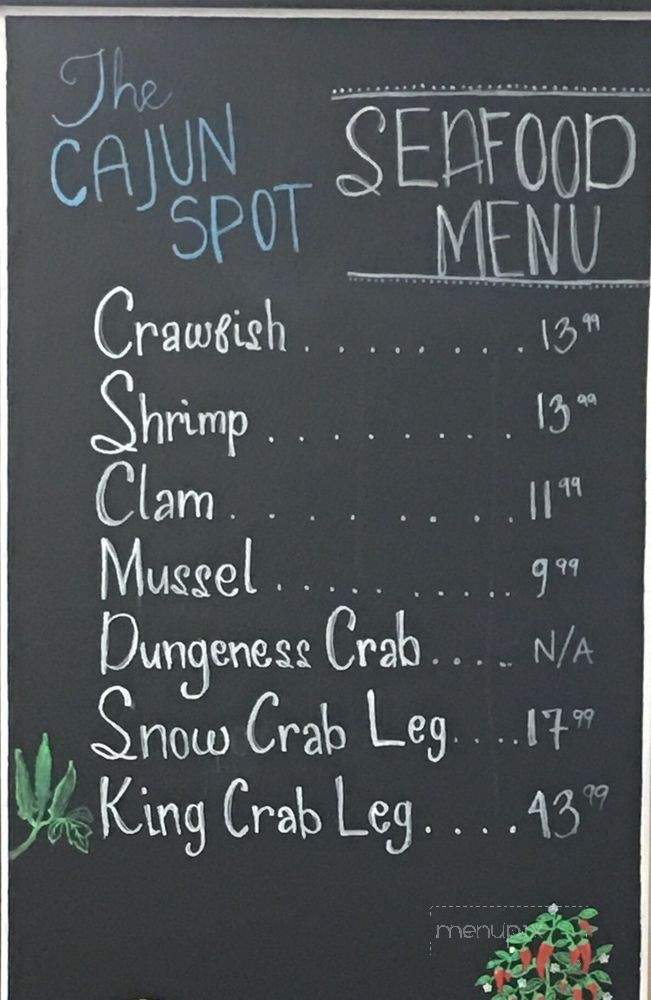 The
CAJUN
SPOT
SEAFOOD
MENU
Crawfish . . . . . . . . . 13 99
Shrimp . . . . . . . . 13 99
Clam . . . . . . . 11 99
Mussel . . . . . . . . . . 9 99
Dungeness Crab . . . . N/A
Snow Crab Leg . . . . . 17 99
King Crab Leg . . . . 43 99
menupix